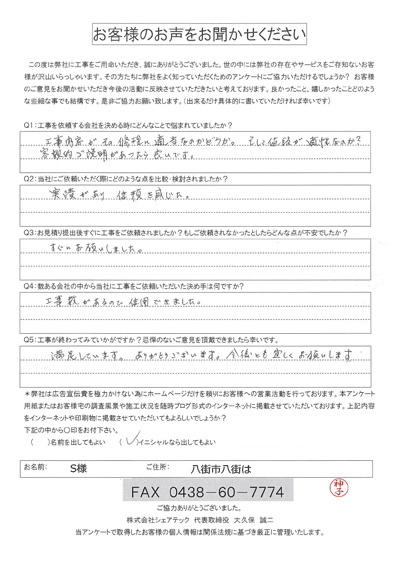 お客様のお声をお聞かせください
この度は弊社に工事をご用命いただき、誠にありがとうございました。世の中には弊社の存在やサービスをご存知ないお客
様が沢山いらっしゃいます。その方たちに弊社をよく知っていただくためのアンケートにご協力いただけるでしょうか？ お客様
のご意見をお聞かせいただき今後の活動に反映させていただきたいと考えております。良かったこと、嬉しかったことどのよう
な些細な事でも結構です。是非ご協力お願い致します。(出来るだけ具体的に書いていただければ幸いです)
Q1:工事を依頼する会社を決める時にどんなことで悩まれていましたか？
工事内容がその修理に適当なのかどうか。そして値段が適性なのか？
客観的ご説明があったら良いです。
Q2:当社にご依頼いただく際にどのような点を比較・検討されましたか？
実績があり 信頼を感じた。
Q3:お見積り提出後すぐに工事をご依頼されましたか？もしご依頼されなかったとしたらどんな点が不安でしたか？
すぐにお願いしました。
Q4:数ある会社の中から当社に工事をご依頼いただいた決め手は何ですか？
工事数があるので信用できました。
Q5:工事が終わってみていかがですか？忌憚のないご意見を頂戴できましたら幸いです。
満足しています。ありがとうございます。今後とも宜しくお願いします
＊弊社は広告宣伝費を極力かけない為にホームページだけを頼りにお客様への営業活動を行っております。本アンケート
用紙またはお客様宅の調査風景や施工状況を随時ブログ形式のインターネットに掲載させていただいております。上記内容
をインターネットや印刷物に掲載させていただいてもよろしいでしょうか？
下記の中から〇印をお付下さい。
(　)名前を出してもよい　(✓)イニシャルなら出してもよい
お名前: S様 ご住所: 八街市八街は
FAX 0438－60－7774
ご協力ありがとうございました。
株式会社シェアテック 代表取締役 大久保 誠二
当アンケートで取得したお客様の個人情報は関係法規に基づき厳正に管理いたします。